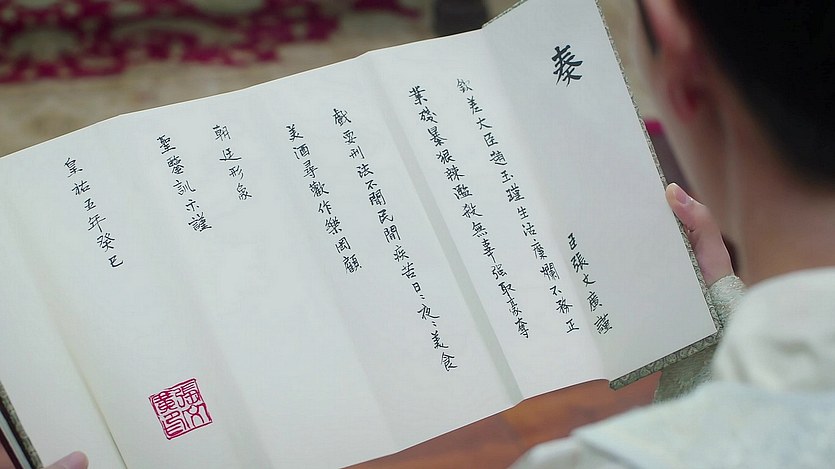 奏
臣張文廣謹
欽差大臣趙玉瑾生活糜爛不務正
業殘暴狠辣濫殺無辜強取豪奪
戲耍刑法不聞民間疾苦日々夜々美食
美酒尋歡作樂罔顧
朝廷形象
聖鑒訓示謹
皇祐五年癸巳
張文廣印